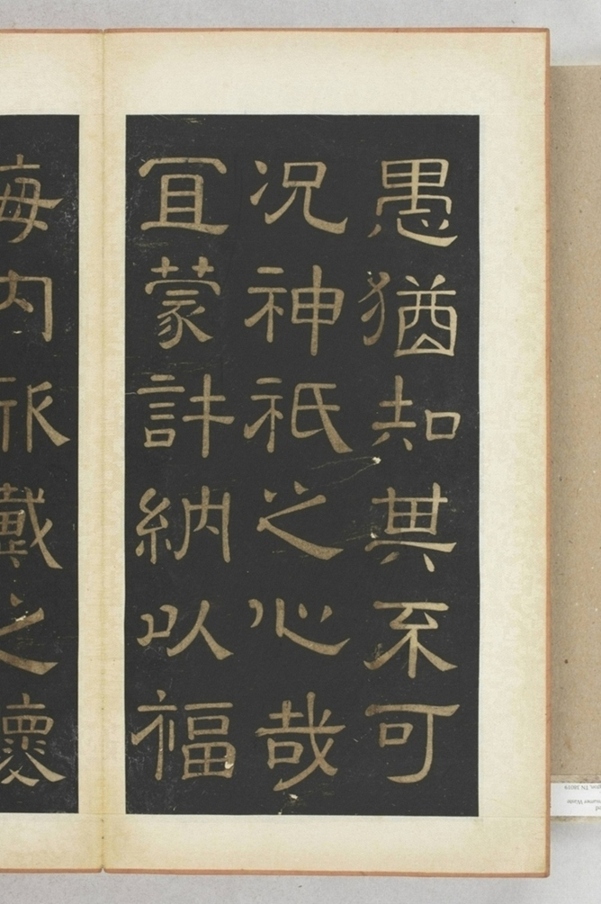 愚猶知其不可
況神祇之心哉
冝蒙許納以福
海內戴之